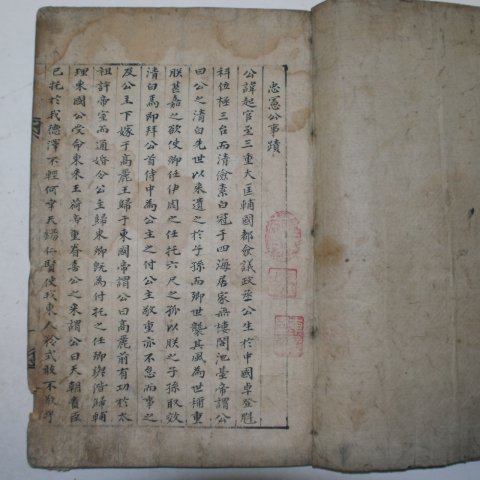 忠憲公事蹟
公諱起官至三重大匡輔國都僉議政丞公生於中國卓登魁
科位極三台而清儉素白冠于四海居家無樓閣池臺帝謂公
曰公之清白先世以來遺之於子孫而卿世襲其風為世補重
朕甚嘉之欲使卿任伊周之任托六尺之孤以朕之子孫取效
清白焉卿拜公首侍中為公主之付公主敬重亦不怠而事之
及公主下嫁于高麗王歸于東國帝謂公曰高麗前有功於太
祖許帝室而通婚今公主歸東卿旣為付托之任卿與偕歸輔
理東國公受命東來王荷重眷喜公之來謂公曰天朝賚臣
已托於我德澤不輕何幸天錫仁賢使我東人矜式敢不敬乎